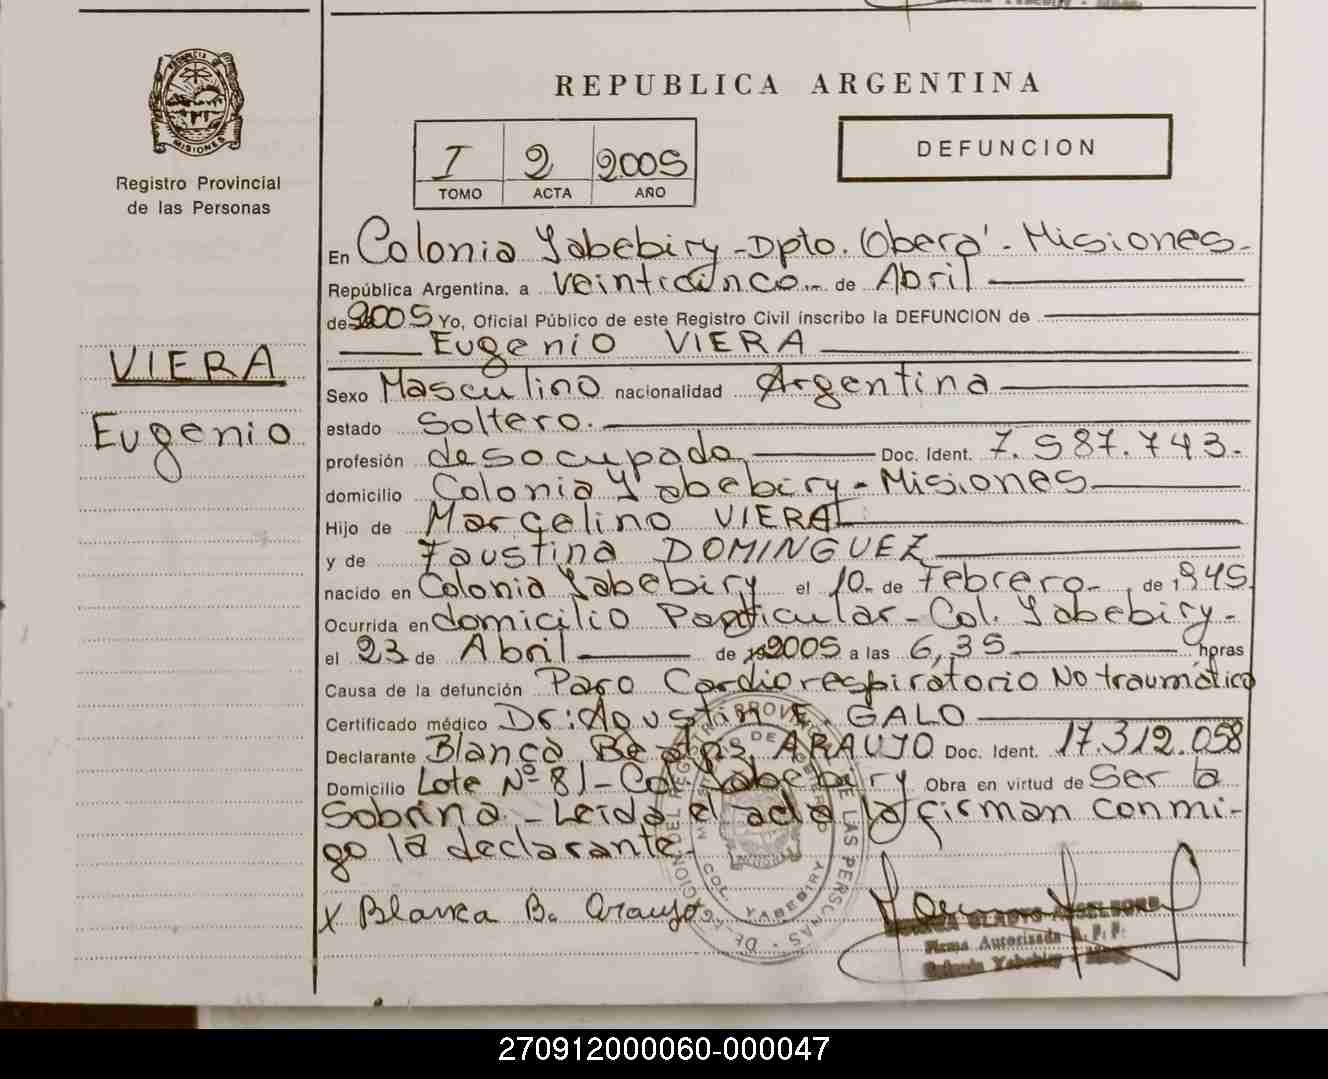 PROVINCIA DE
MISIONES
Registro Provincial
de las Personas
VIERA
Eugenio
REPUBLICA ARGENTINA
I 2 2005
TOMO ACTA AÑO
DEFUNCION
En Colonia Yabebiry - Dpto. Oberá - Misiones -
República Argentina, a veinticinco de Abril
de 2005 Yo, Oficial Público de este Registro Civil inscribo la DEFUNCION de
Eugenio VIERA
Sexo Masculino nacionalidad Argentina
estado Soltero.
profesión desocupado Doc. Ident. 7.587.743.-
domicilio Colonia Yabebiry - Misiones
Hijo de Marcelino VIERA
y de Faustina DOMINGUEZ
nacido en Colonia Yabebiry el 10 - de Febrero - de 1945
Ocurrida en domicilio Particular - Col. Yabebiry -
el 23 de Abril de 2005 a las 6,35 horas
Causa de la defunción Paro Cardiorespiratorio No traumático
Certificado médico Dr: Agustin E. GALO
Declarante Blanca ARAUJO Doc. Ident. 17.312.058
Domicilio Lote Nº 81 - Col. Yabebiry Obra en virtud de Ser la
Sobrina - Leída el acta la firman conmi-
go la declarante.
X Blanca B. Araujo
DELEGACION DEL REGISTRO PROVINCIAL DE LAS PERSONAS
COL. YABEBIRY
GLADYS
Firma Autorizada R. P. P.
Colonia Yabebiry - Mnes.
270912000060-000047